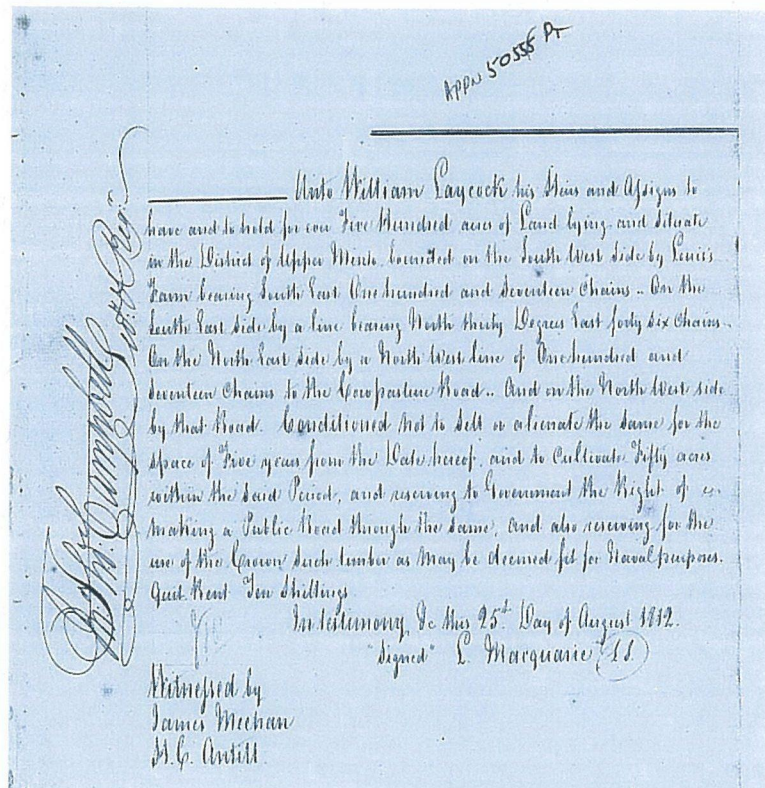 APPN 50556 Pt
Unto William Laycock his Heirs and Assigns to
have and to hold for ever Five Hundred acres of Land lying and Situate
in the District of Upper Minto. bounded on the South West Side by Lewis's
Farm bearing South East One hundred and Seventeen Chains .. On the
South East Side by a line bearing North thirty Degrees East forty six Chains ..
On the North East Side by a North West line of One hundred and
Seventeen Chains to the Cowpasture Road .. And on the North West side
by that Road. Conditioned not to Sell or alienate the Same for the
Space of Five years from the Date hereof, and to Cultivate Fifty acres
within the Said Period, and reserving to Government the Right of
making a Public Road through the Same, and also reserving for the
use of the Crown Such timber as may be deemed fit for Naval purposes.
Quit Rent Ten Shillings
In testimony &c this 25th Day of August 1812.
"Signed" L. Macquarie LS.
Witnessed by
James Meehan
H. C. Antill.
Jno. Campbell